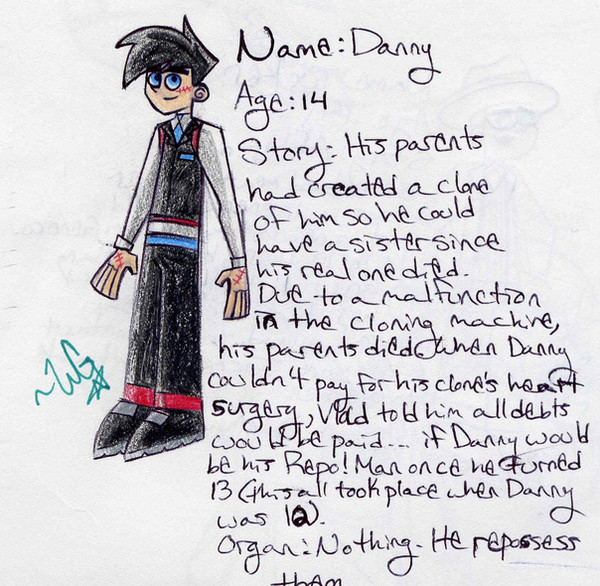 Name: Danny
Age: 14
Story: His parents
had created a clone
of him so he could
have a sister since
his real one died.
Due to a malfunction
in the cloning machine,
his parents died. When Danny
couldn't pay for his clone's heart
surgery, Vlad told him all debts
would be paid... if Danny would
be his Repo! Man once he turned
13 (this all took place when Danny
was 12).
Organ: Nothing. He repossess
them
~WG